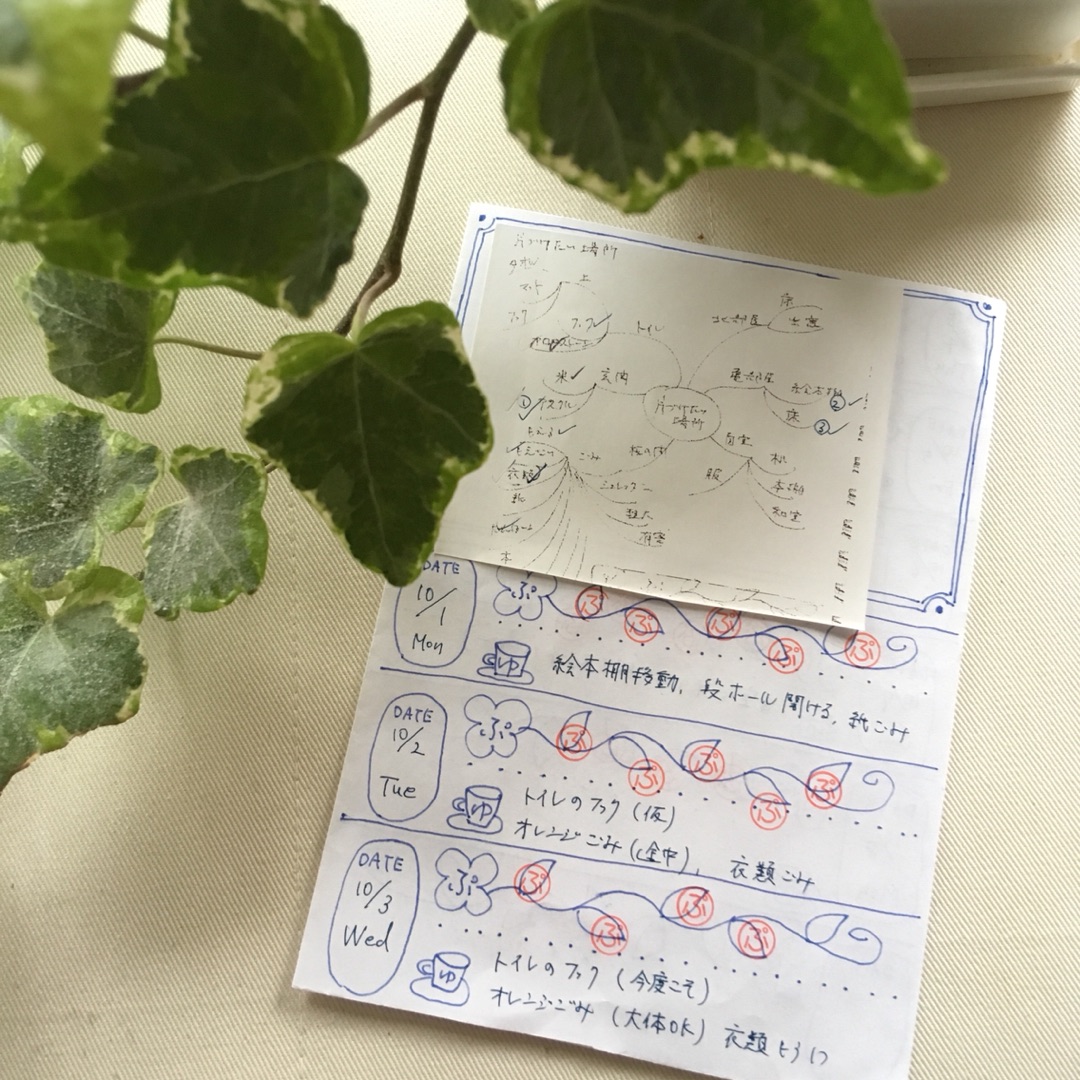 片づけたい場所
タオル
マット
フック
フック
トイレ
北部屋
出窓
米
玄関
片づけたい
場所
②
床
③
①
もえる
ごみ
自室
机
服
本棚
和室
シュレッダー
粗大
有害
衣類
紙
本
DATE
10/1
Mon
ぷ
ぷ ぷ ぷ ぷ ぷ
ゆ
絵本棚移動、段ボール開ける、紙ごみ
DATE
10/2
Tue
ぷ
ぷ ぷ ぷ ぷ ぷ
ゆ
トイレのフック(仮)
オレンジごみ(途中)、衣類ごみ
DATE
10/3
Wed
ぷ
ぷ ぷ ぷ ぷ
ゆ
トイレのフック(今度こそ)
オレンジごみ(大体OK) 衣類